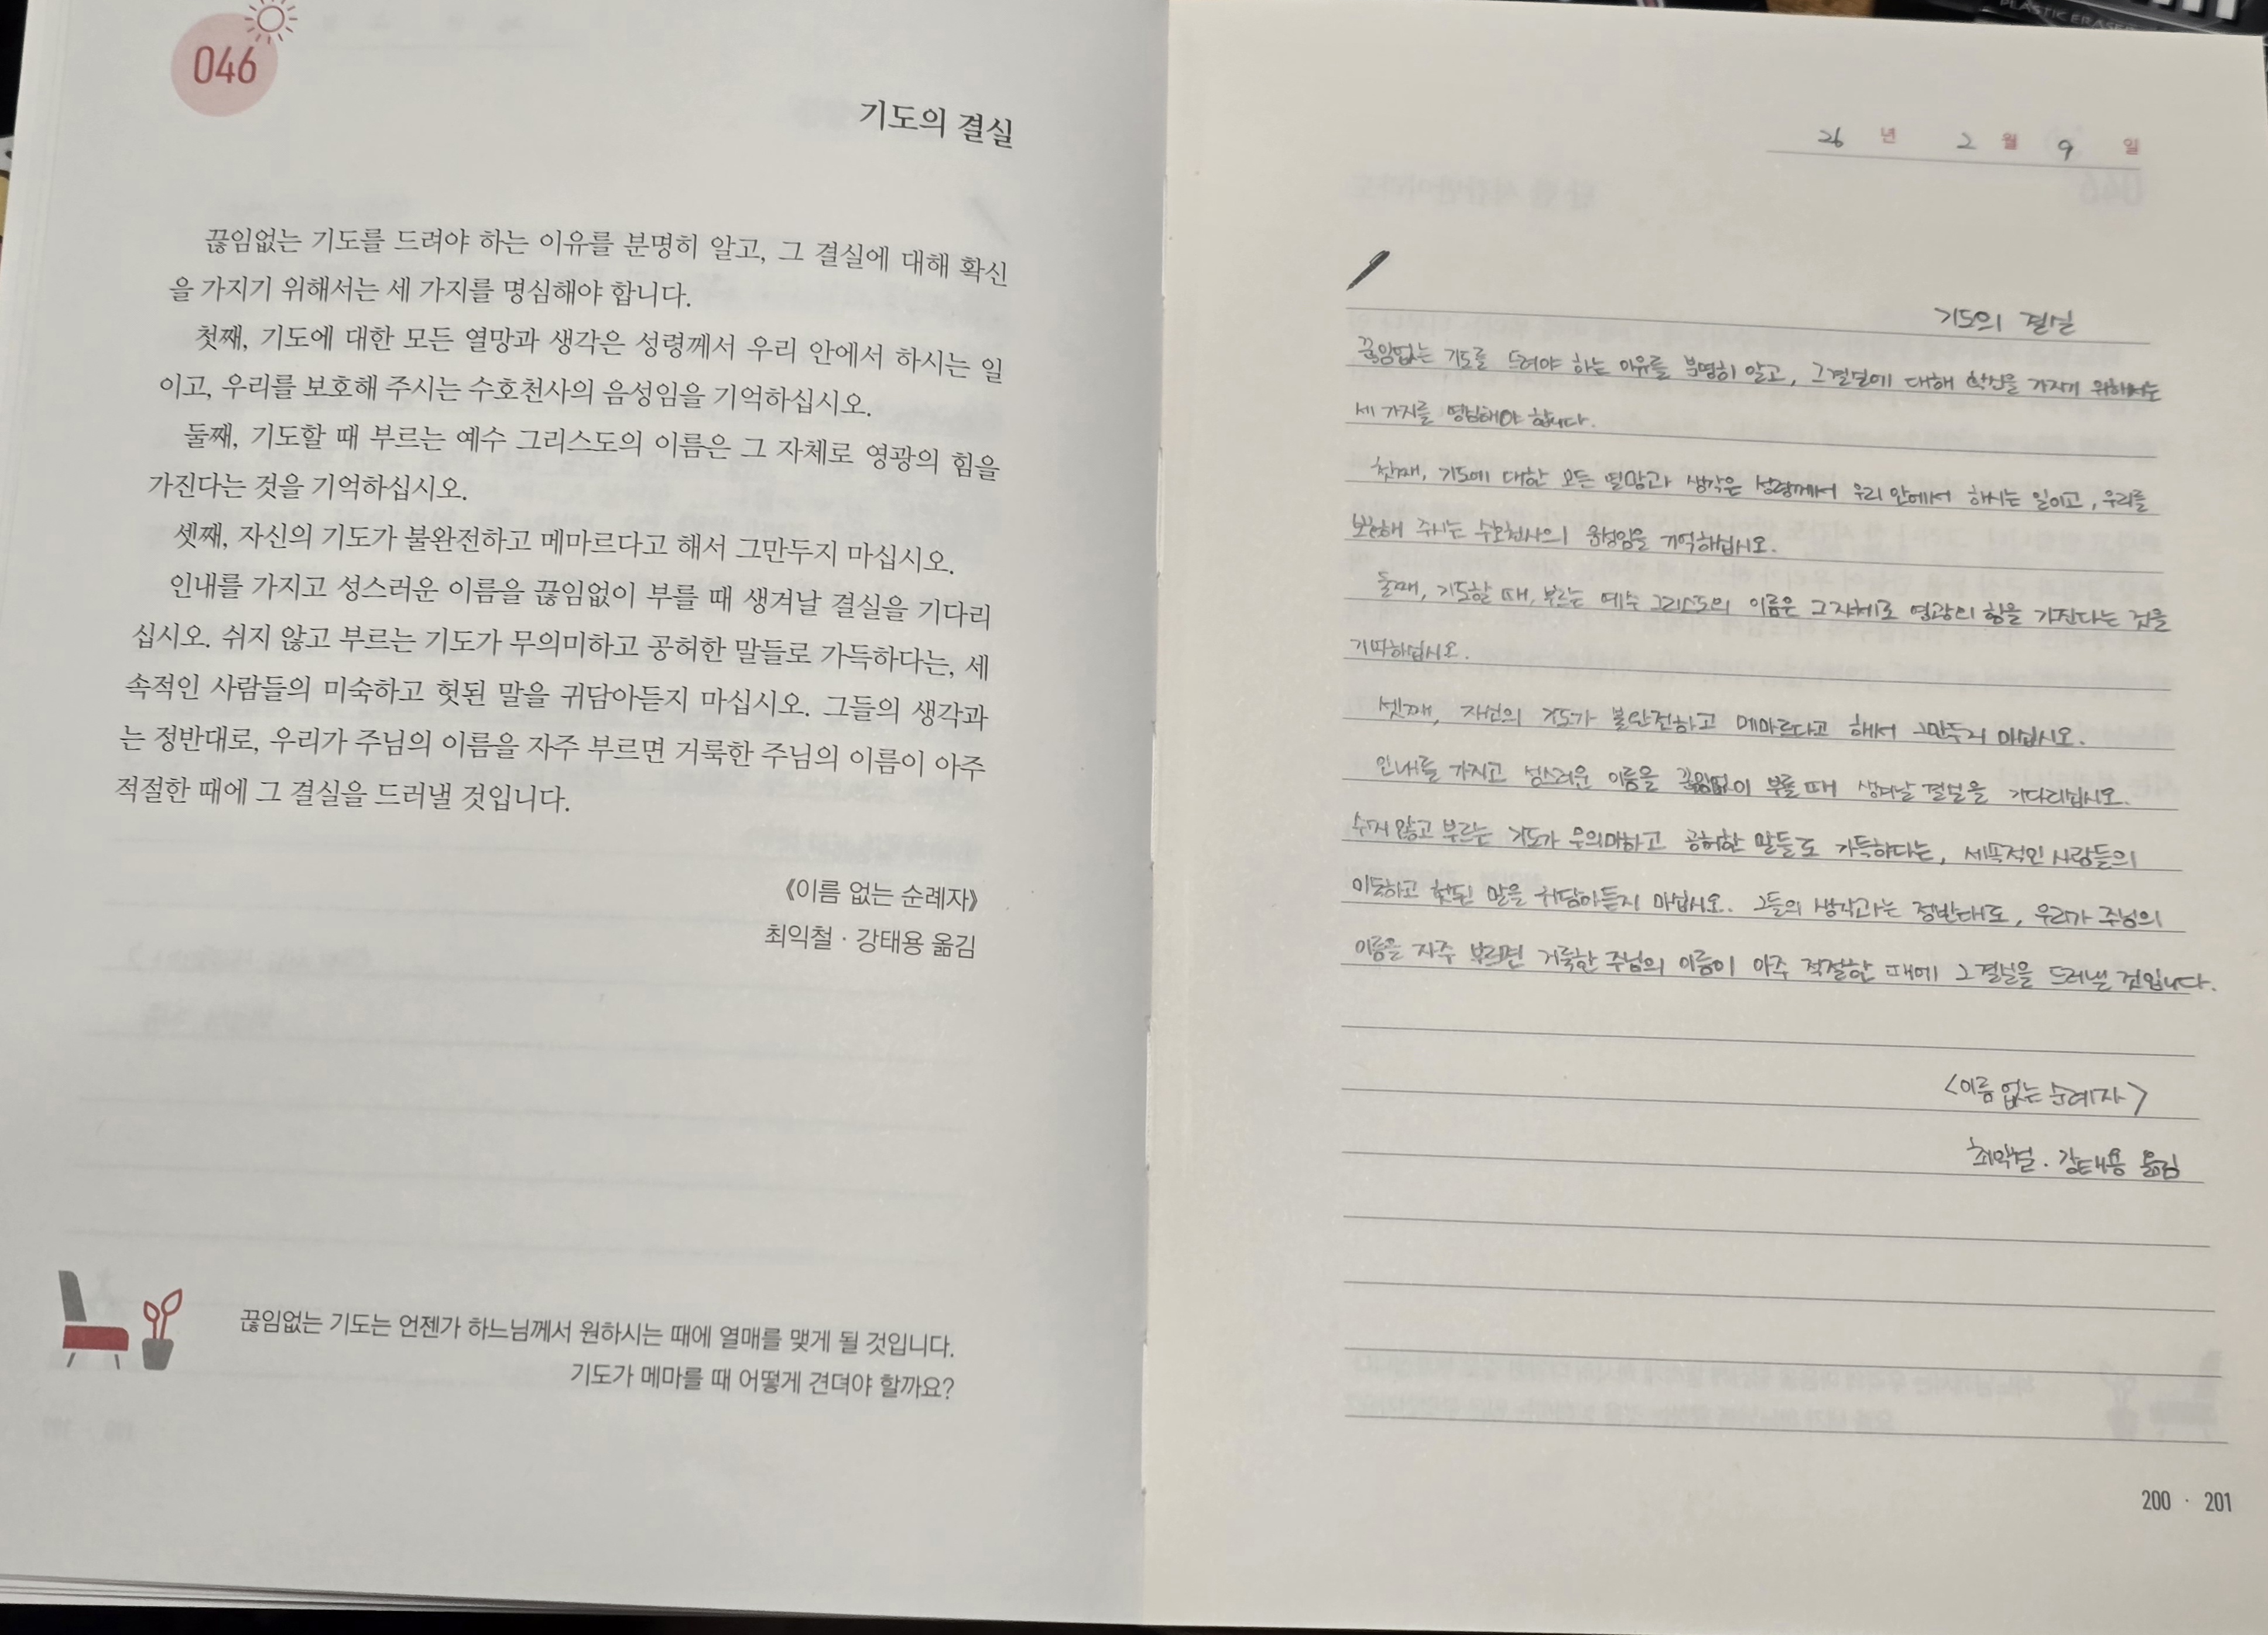 046
기도의 결실
끊임없는 기도를 드려야 하는 이유를 분명히 알고, 그 결실에 대해 확신
을 가지기 위해서는 세 가지를 명심해야 합니다.
첫째, 기도에 대한 모든 열망과 생각은 성령께서 우리 안에서 하시는 일
이고, 우리를 보호해 주시는 수호천사의 음성임을 기억하십시오.
둘째, 기도할 때 부르는 예수 그리스도의 이름은 그 자체로 영광의 힘을
가진다는 것을 기억하십시오.
셋째, 자신의 기도가 불완전하고 메마르다고 해서 그만두지 마십시오.
인내를 가지고 성스러운 이름을 끊임없이 부를 때 생겨날 결실을 기다리
십시오. 쉬지 않고 부르는 기도가 무의미하고 공허한 말들로 가득하다는, 세
속적인 사람들의 미숙하고 헛된 말을 귀담아듣지 마십시오. 그들의 생각과
는 정반대로, 우리가 주님의 이름을 자주 부르면 거룩한 주님의 이름이 아주
적절한 때에 그 결실을 드러낼 것입니다.
《이름 없는 순례자》
최익철 · 강태용 옮김
끊임없는 기도는 언젠가 하느님께서 원하시는 때에 열매를 맺게 될 것입니다.
기도가 메마를 때 어떻게 견뎌야 할까요?
26 년 2 월 9 일
기도의 결실
끊임없는 기도를 드려야 하는 이유를 분명히 알고, 그 결실에 대해 확신을 가지기 위해서는
세 가지를 명심해야 합니다.
첫째, 기도에 대한 모든 열망과 생각은 성령께서 우리 안에서 하시는 일이고, 우리를
보호해 주시는 수호천사의 음성임을 기억하십시오.
둘째, 기도할 때, 부르는 예수 그리스도의 이름은 그 자체로 영광의 힘을 가진다는 것을
기억하십시오.
셋째, 자신의 기도가 불완전하고 메마르다고 해서 그만두지 마십시오.
인내를 가지고 성스러운 이름을 끊임없이 부를 때 생겨날 결실을 기다리십시오.
쉬지 않고 부르는 기도가 무의미하고 공허한 말들로 가득하다는, 세속적인 사람들의
미숙하고 헛된 말을 귀담아듣지 마십시오. 그들의 생각과는 정반대로, 우리가 주님의
이름을 자주 부르면 거룩한 주님의 이름이 아주 적절한 때에 그 결실을 드러낼 것입니다.
<이름 없는 순례자>
최익철 · 강태용 옮김
200 · 201
PLASTIC ERASER